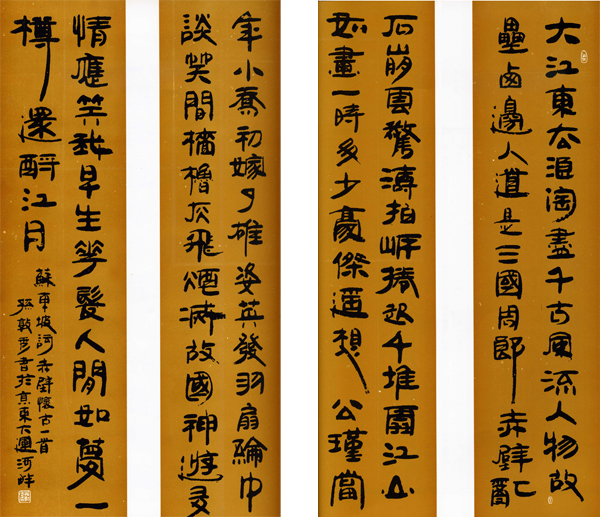 大江東去浪淘盡千古風流人物故
壘西邊人道是三國周郎赤壁亂
石崩雲驚濤拍岸捲起千堆雪江山
如畫一時多少豪傑遥想公瑾當
年小喬初嫁了雄姿英發羽扇綸巾
談笑間檣櫓灰飛煙滅故國神遊多
情應笑我早生華髮人間如夢一
樽還酹江月
蘇東坡詞赤壁懷古一首
孫敦秀書於京東大運河畔